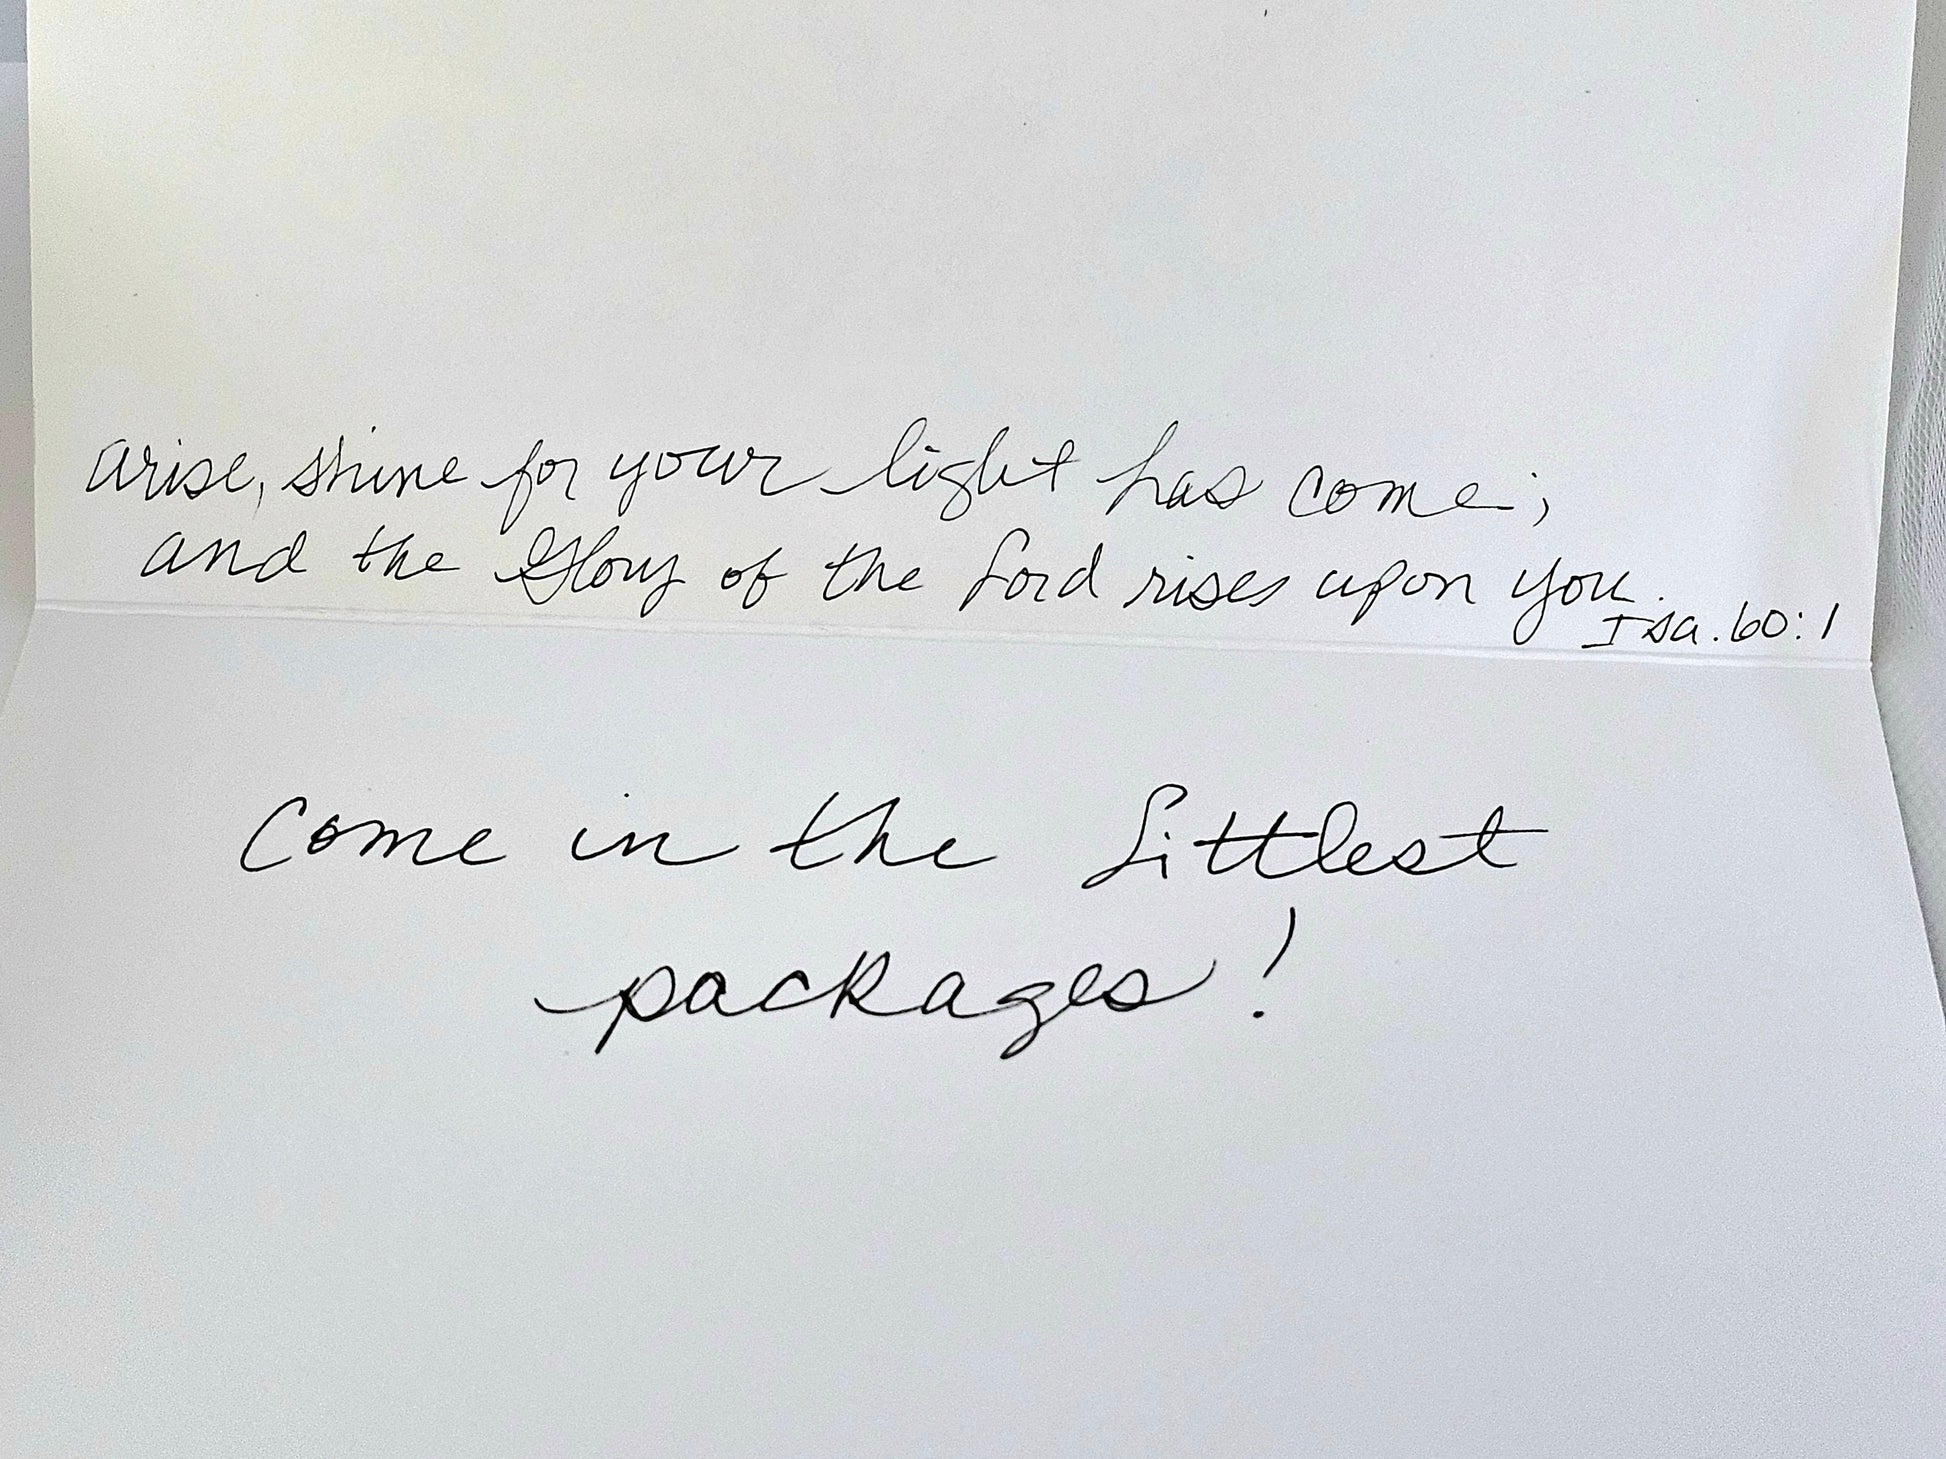 Arise, shine for your light has come;
and the Glory of the Lord rises upon you.
Isa. 60:1
Come in the Littlest
packages!